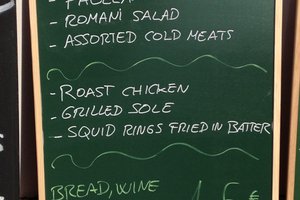 - PAELLA
- ROMANI SALAD
- ASSORTED COLD MEATS
- ROAST CHICKEN
- GRILLED SOLE
- SQUID RINGS FRIED IN BATTER
BREAD, WINE
€